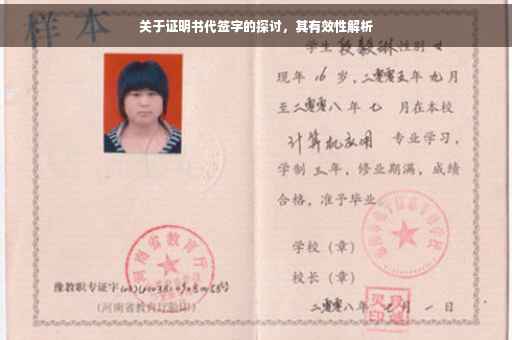 关于证明书代签字的探讨，其有效性解析
样本
学生段毅琳性别女
现年16岁，二零零五年九月
至二零零八年七月在本校
计算机应用 专业学习，
学制三年，修业期满，成绩
合格，准予毕业。
学校（章）
校长（章）
二零零八年七月一日
河南省教育厅
豫教职专证字
（河南省教育厅验印）